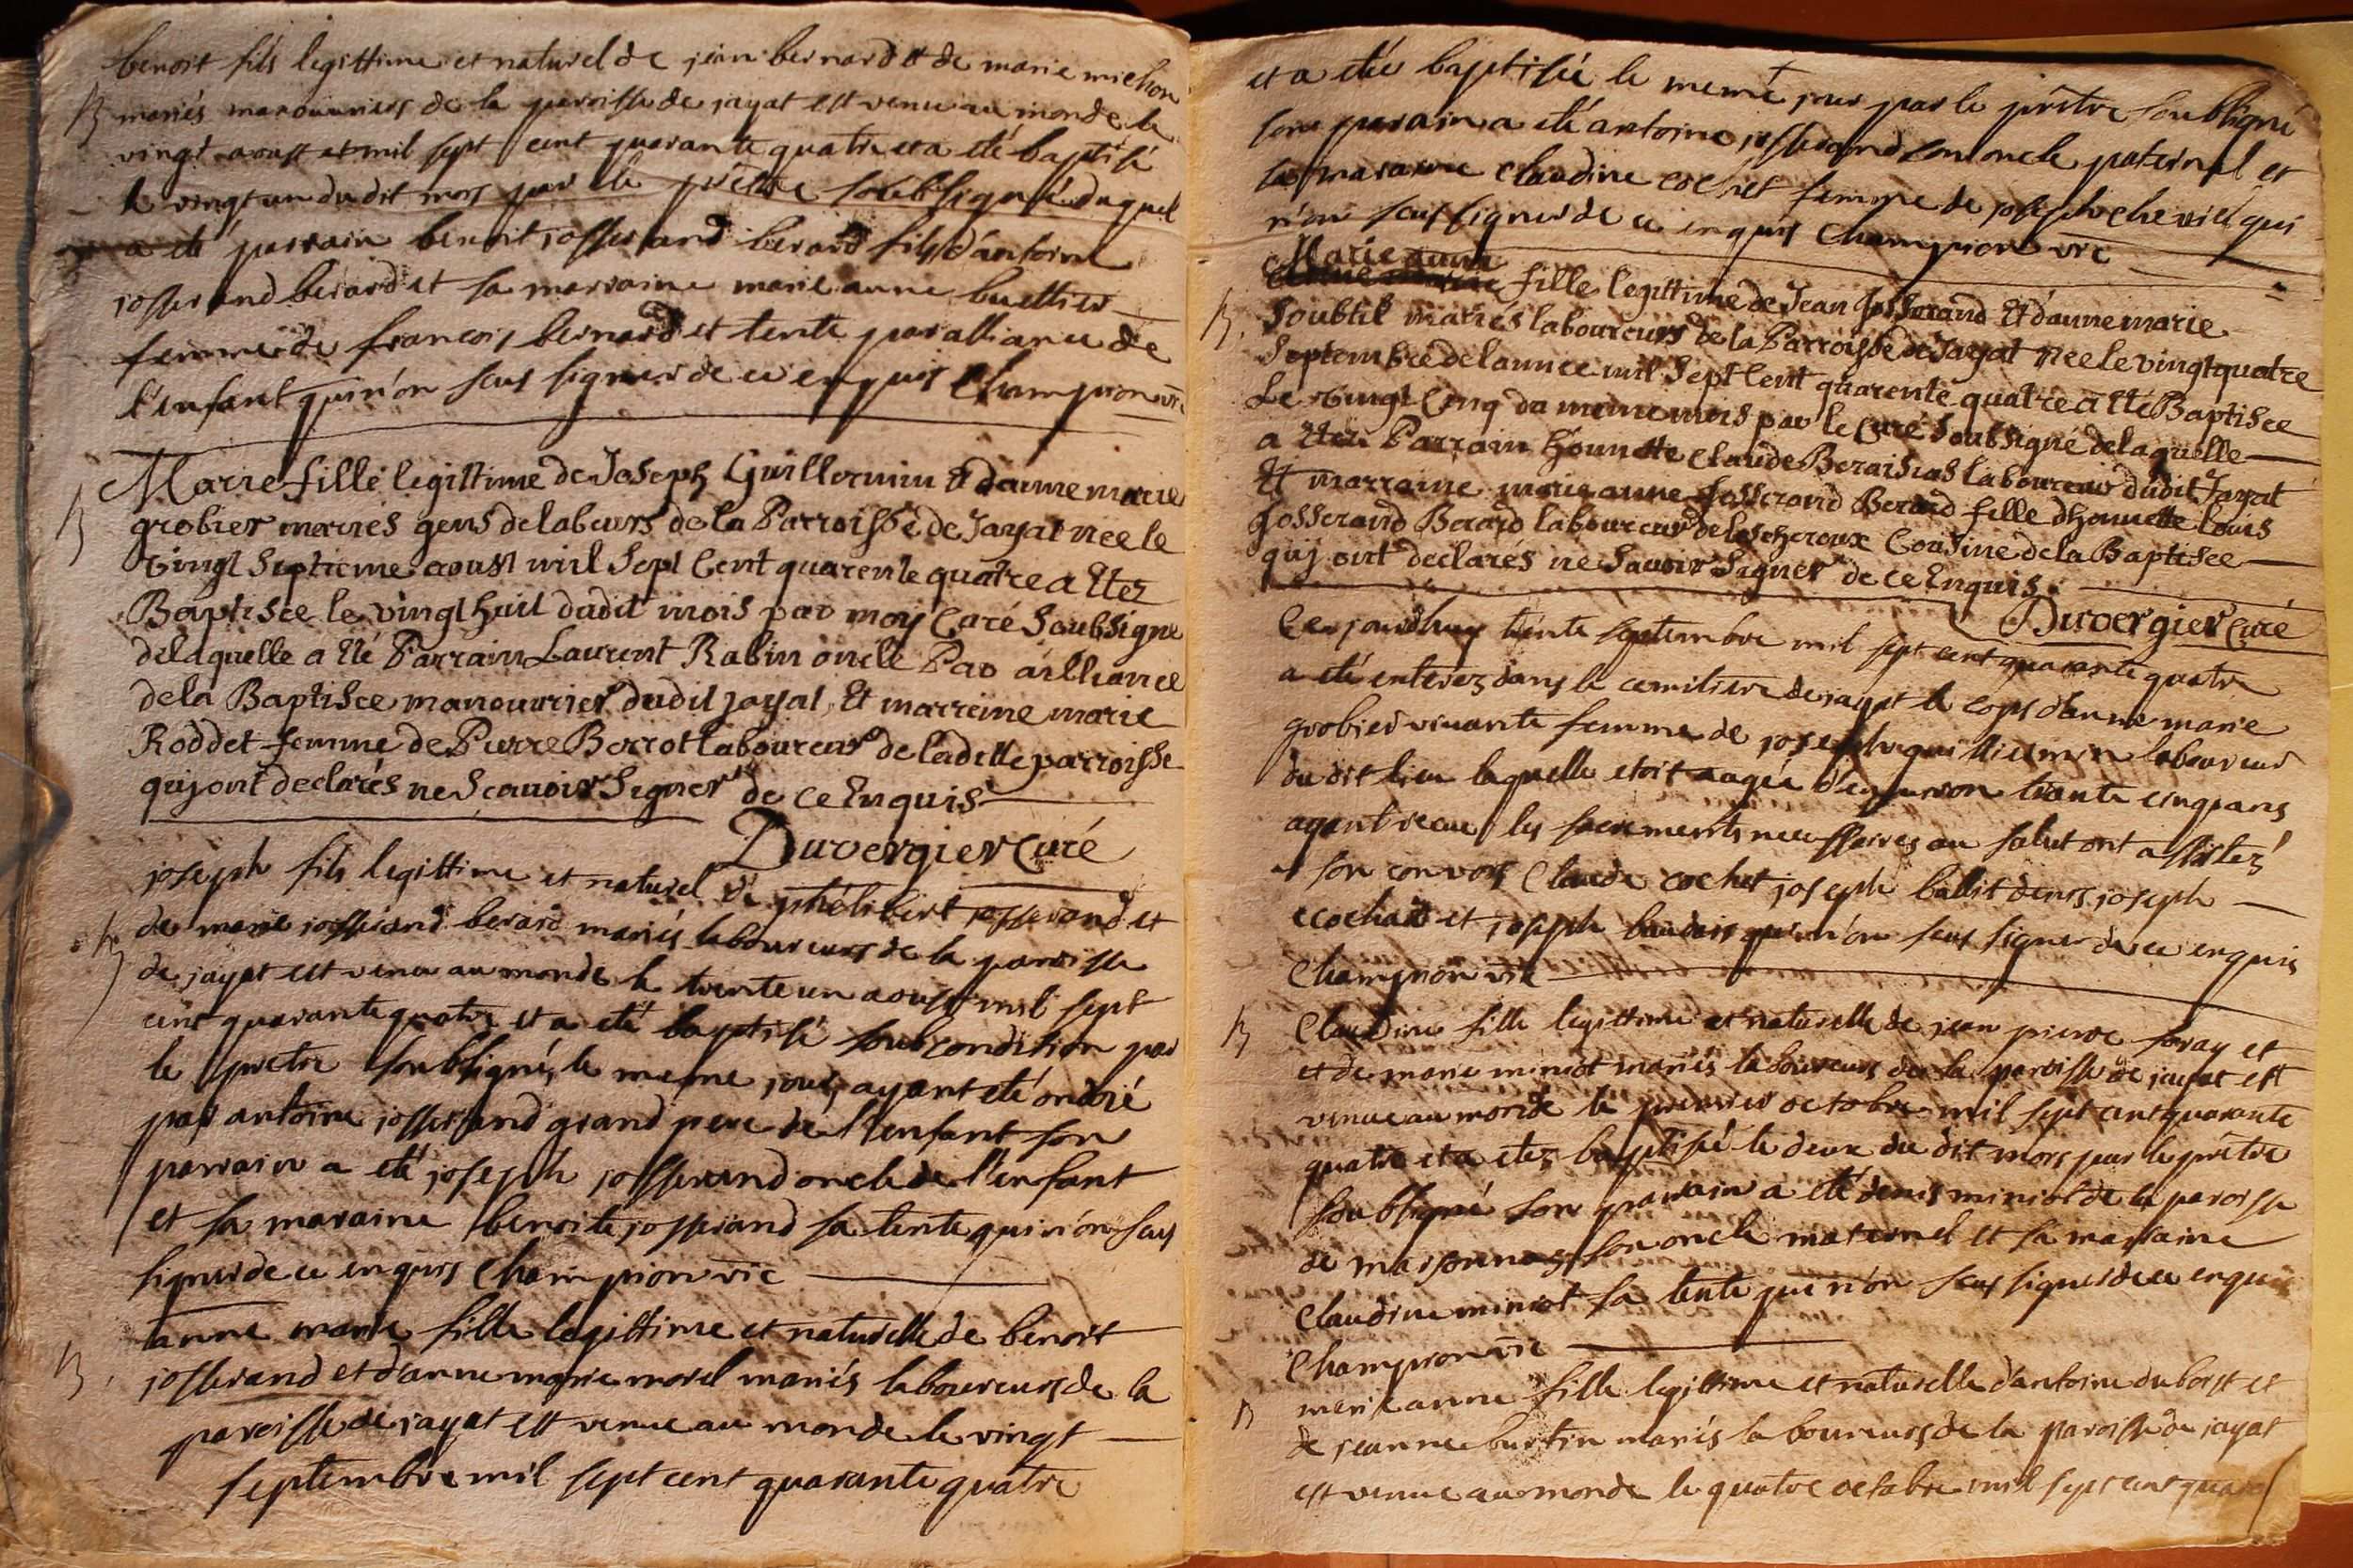 benoit fils legittime et naturel de jean bernard et de marie michon
B mariés manouuriers de la paroisse de jayat est venu au monde le
vingt aoust et mil sept cent quarante quatre et a été baptisé
le vingt un du dit mois par le prêtre soubsigné duquel
a eté parrain benoit josserand berard fils d'antoine
josserand berard et sa marraine marie anne buellier
femme de francois bernard et tente par alliance de
l'enfant qui n'on seus signer de ce enquis Champion vic
Marie fille legittime de Joseph Guillermin Et danne marie
B grobier mariés gens de labeurs de la Parroisse de Jayat nee le
Vingt Septieme aoust mil Sept Cent quarente quatre a Etez
Baptisee le vingt huit dudit mois par moy Curé Soubsigne
delaquelle a Eté Parrain Laurent Rabin oncle Par allience
dela Baptisee manouvrier dudit jayat, Et marreine marie
Roddet femme de Pierre Berrot laboureur de ladette parroisse
quj ont declarés ne Scauoir Signer de ce Enquis
Duvergier Curé
joseph fils legittime et naturel de phélibert josserand et
B de marie josserand berard mariés laboureurs de la paroisse
de jayat est venu au monde le trente un aoust mil sept
cent quarante quatre et a eté baptisé soub condition par
le pretre soubsigné, le meme jour, ayant eté ondoié
par antoine josserand grand pere de l'enfant son
parrain a eté joseph josserand oncle de l'enfant
et sa maraine benoite josserand sa tente qui n'on seus
signer de ce enquis Champion vic
anne marie fille legittime et naturelle de benoit
B josserand et d'anne marie morel mariés laboureurs de la
paroisse de jayat est venue au monde le vingt
septembre mil sept cent quarante quatre
et a etée baptisée le meme jour par le prêtre soubsigné
son parain a eté antoine josserand son oncle paternel et
sa maraine Claudine cochet femme de joseph chevriel qui
n'on seus signer de ce enquis Champion vic
Marie anne
fille legittime de Jean Josserand Et d'anne marie
B Soubtil mariés laboureurs de la Parroisse de Jayat nee le vingt quatre
Septembre de lannee mil Sept Cent quarente quatre a Eté Baptisee
Le Vingt Cinq du meme mois par le Curé Soubsigné delaquelle
a Etez Parrain hounette Claude laboureur dudit Jayat
Et marraine marie anne Josserand Berard fille dhonnette louis
Josserand Berard laboureur de lescheroux Cousine de la Baptisee
quj ont declarés ne Savoir Signer de ce Enquis.
Duvergier Curé
Ce jourdhuy trente septembre mil sept cent quarante quatre
a eté enterez dans le cemitiere de jayat le cops d'anne marie
grobier vivante femme de joseph guilliermin laboureur
du dit lieu laquelle etoit aagée d'environ trante cinq ans
ayant receu les sacrements necessaires au salut ont assistez
a son convois Claude cochet joseph ballit denis joseph
ecochard et joseph qui n'on seus signer de ce enquis
Champion vic
B Claudine fille legittime et naturelle de jean pierre foray et
et de marie miniot mariés laboureurs de la paroisse de jayat est
venue au monde le premier octobre mil sept cent quarante
quatre et a etez baptisée le deux du dit mois par le prêtre
soubsigné son parrain a eté denis miniot de la paroisse
de marsonnaz son oncle maternel et sa marraine
Claudine miniot sa tente qui n'on seus signer de ce enquis
Champion vic
B marie anne fille legittime et naturelle d'antoine duboist et
de jeanne burtin mariés laboureurs de la paroisse de jayat
est venue au monde le quatre octobre mil sept cent quara